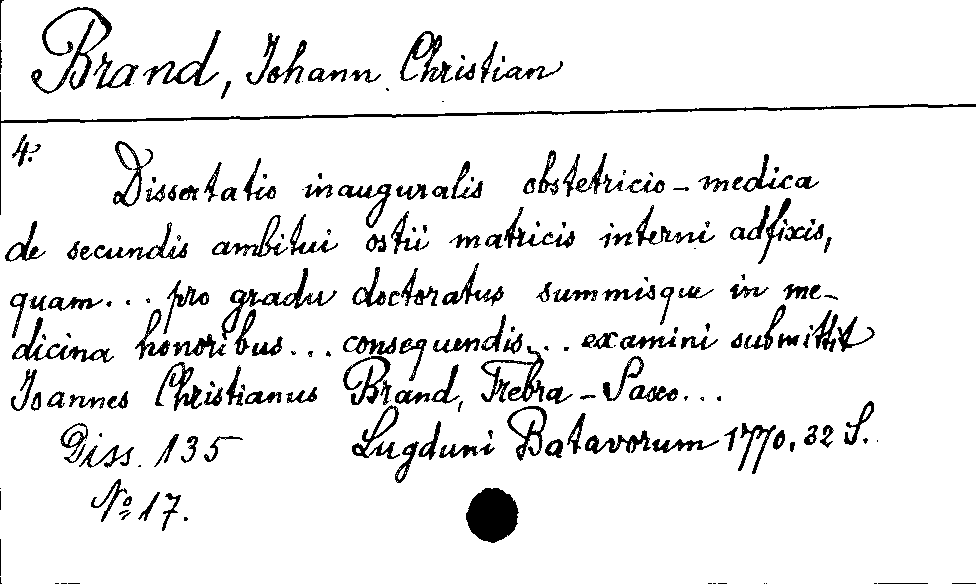 Brand, Johann Christian
4.
Dissertatio inauguralis obstetricio-medica
de secundis ambitui ostii matricis interni adfixis,
quam... pro gradu doctoratus summisque in me-
dicina honoribus... consequendis... examini submittit
Joannes Christianus Brand, Trebra-Saxo...
Diss. 135 Lugduni Batavorum 1770. 32 S.
No 17.